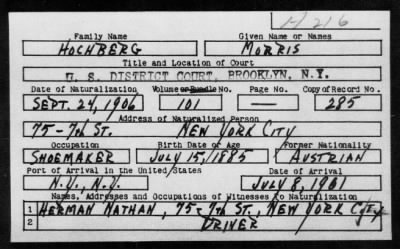 H 216
Family Name Given Name or Names
HOCHBERG MORRIS
Title and Location of Court
U. S. DISTRICT COURT, BROOKLYN, N.Y.
Date of Naturalization Volume or Bundle No. Page No. Copy of Record No.
SEPT. 24, 1906 101 — 285
Address of Naturalized Person
75-7TH ST. NEW YORK CITY
Occupation Birth Date or Age Former Nationality
SHOEMAKER JULY 15, 1885 AUSTRIAN
Port of Arrival in the United States Date of Arrival
N.Y., N.Y. JULY 8, 1901
Names, Addresses and Occupations of Witnesses to Naturalization
1 HERMAN NATHAN, 75-7TH ST., NEW YORK CITY
2 DRIVER